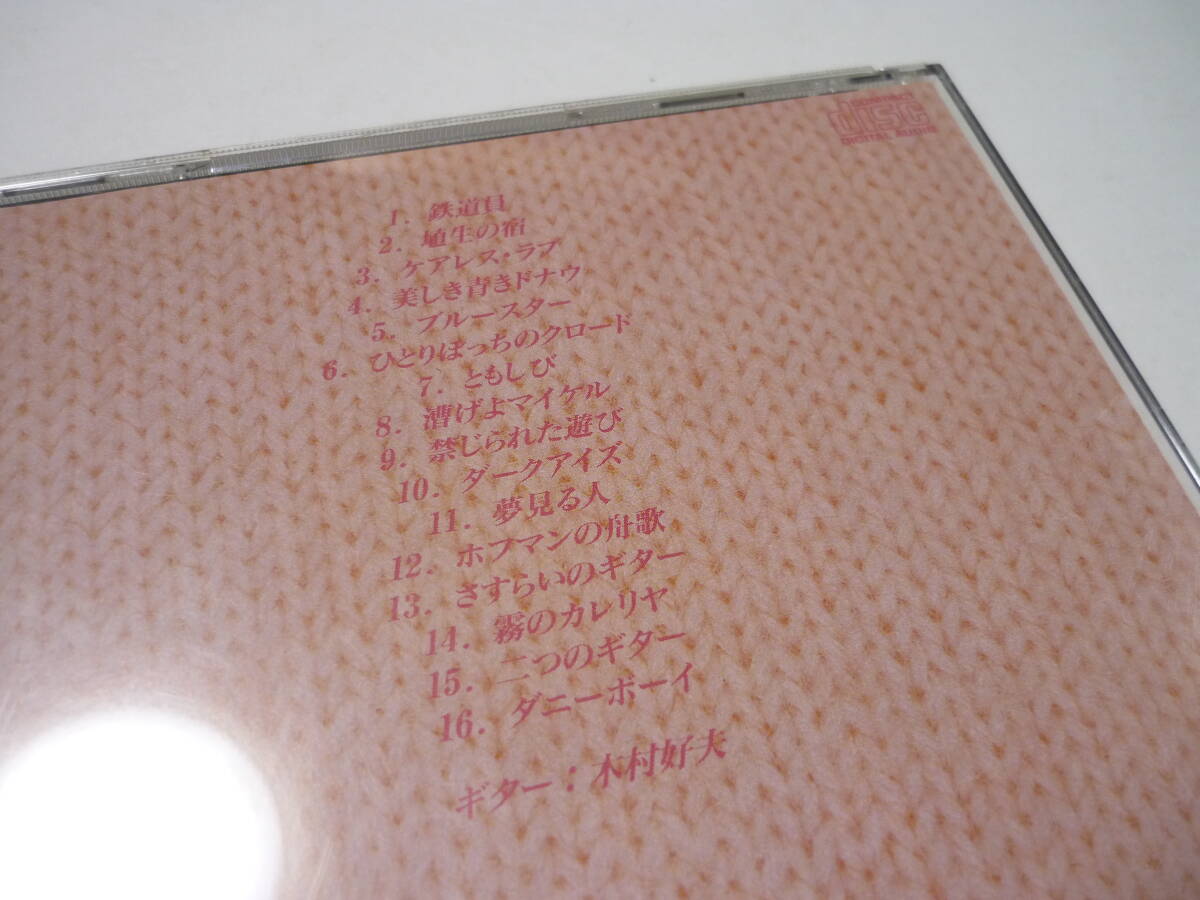 DISC
DIGITAL AUDIO
1. 鉄道員
2. 埴生の宿
3. ケアレス・ラブ
4. 美しき青きドナウ
5. ブルースター
6. ひとりぼっちのクロード
7. ともしび
8. 漕げよマイケル
9. 禁じられた遊び
10. ダークアイズ
11. 夢見る人
12. ホフマンの舟歌
13. さすらいのギター
14. 霧のカレリヤ
15. 二つのギター
16. ダニーボーイ
ギター：木村好夫